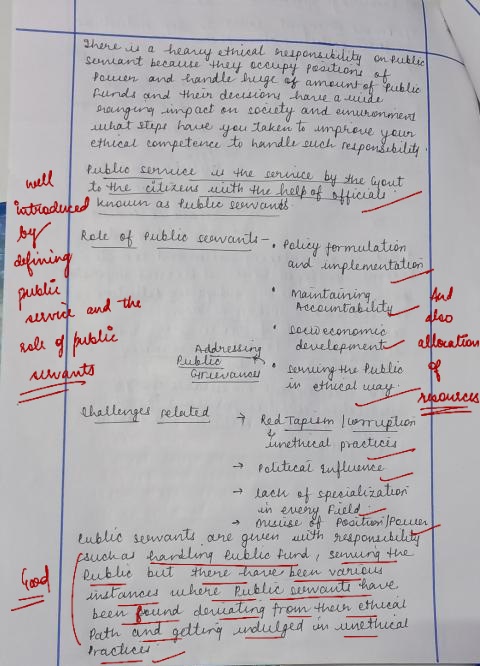 There is a heavy ethical responsibility on Public
servant because they occupy positions of
Power and handle huge of amount of Public
Funds and their decisions have a wide
ranging impact on society and environment
what steps have you taken to improve your
ethical competence to handle such responsibility.
Public service is the service by the Govt
to the citizens with the help of officials
known as Public servants.
well
introduced
by
defining
public
service and the
role of public
servants
Role of Public servants -
• Policy formulation
and implementation
• Maintaining
Accountability
• Socioeconomic
development
• serving the Public
in ethical way.
Addressing
Public
Grievances
And
also
allocation
of
resources
Challenges related
→ Red Tapism / corruption
& unethical practices
→ Political Influence
→ lack of specialization
in every Field.
→ Misuse of Position/Power
Public servants are given with responsibility
such as handling Public Fund, serving the
Public but there have been various
instances where Public servants have
been found deviating from their ethical
Path and getting indulged in unethical
Practices.
Good